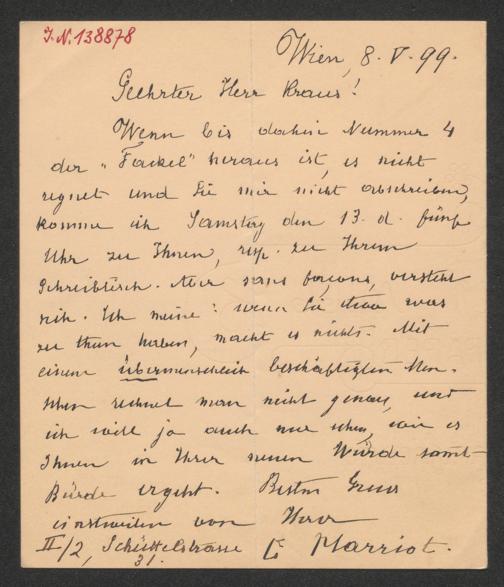 J.N. 138878
Wien, 8. V. 99.
Geehrter Herr Kraus!
Wenn bis dahin Nummer 4
der „Fackel" heraus ist, es nicht
regnet und Sie mir nicht abschreiben,
komme ich Samstag den 13. d. fünf
Uhr zu Ihnen, resp. zu Ihrem
Schreibtisch. Aber sans façons, versteht
sich. Ich meine: wenn Sie etwa was
zu thun haben, macht es nichts. Mit
einem übermenschlich beschäftigten Men-
schen rechnet man nicht genau, und
ich will ja auch nur sehen, wie es
Ihnen in Ihrer neuen Würde samt
Bürde ergeht. Besten Gruss
einstweilen von Ihrer
II/2, Schüttelstrasse E Marriot.
31.